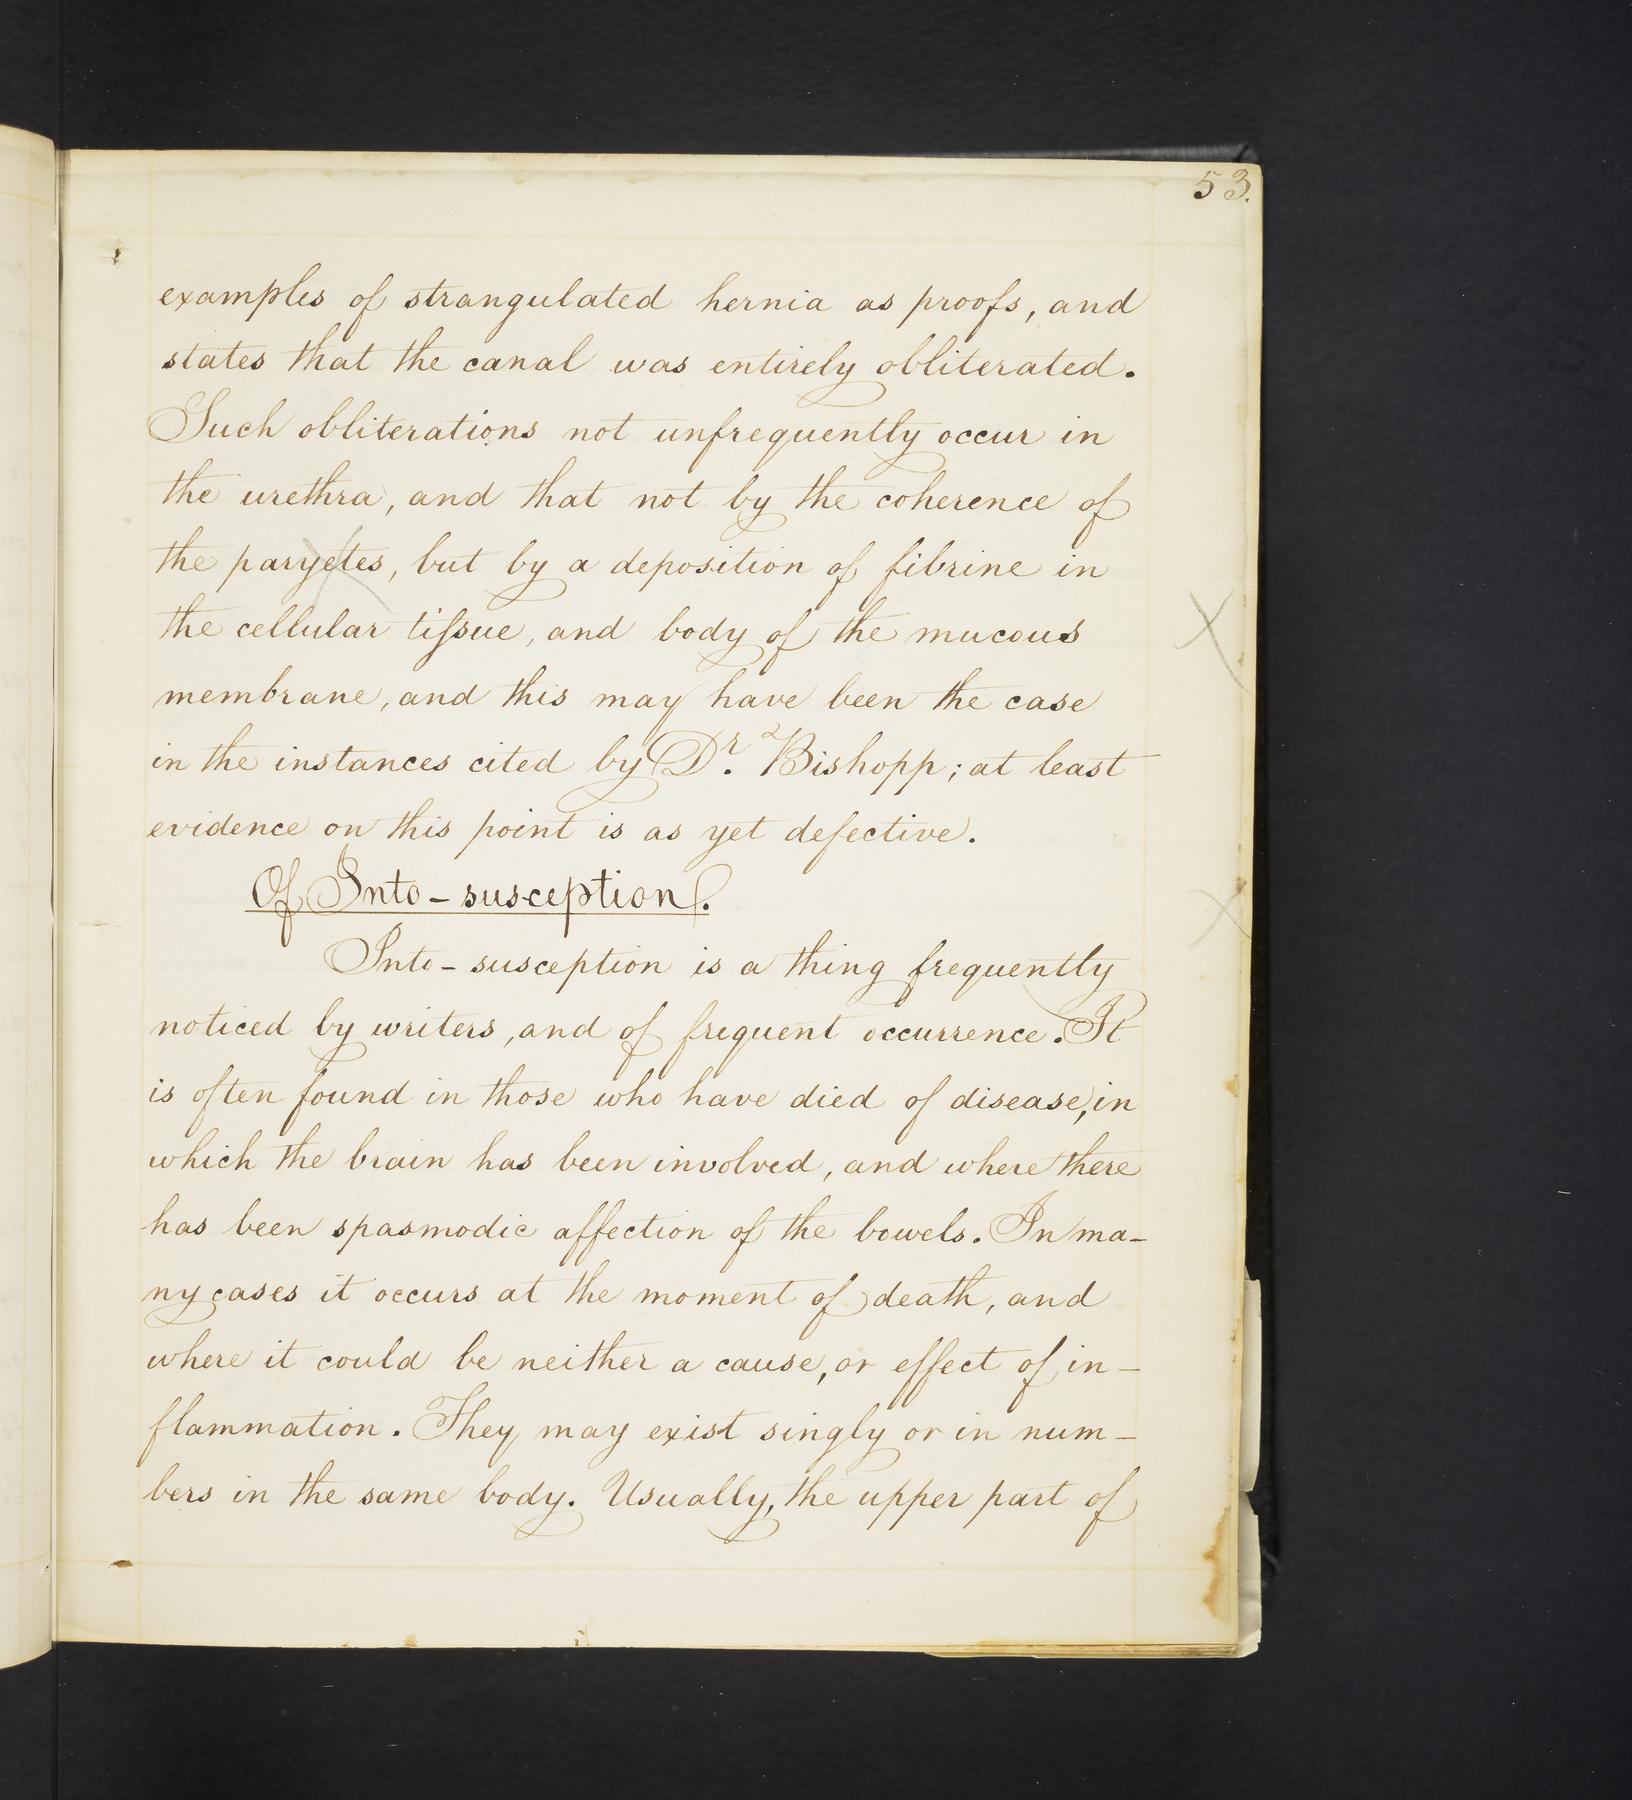 53.
examples of strangulated hernia as proofs, and
states that the canal was entirely obliterated.
Such obliterations not unfrequently occur in
the urethra, and that not by the coherence of
the paryetes, but by a deposition of fibrine in
the cellular tiſsue, and body of the mucous
membrane, and this may have been the case
in the instances cited by Dr. Bishopp; at least
evidence on this point is as yet defective.
Of Into-susception.
Into-susception is a thing frequently
noticed by writers, and of frequent occurrence. It
is often found in those who have died of disease, in
which the brain has been involved, and where there
has been spasmodic affection of the bowels. In ma-
ny cases it occurs at the moment of death, and
where it could be neither a cause, or effect of in-
flammation. They may exist singly or in num-
bers in the same body. Usually, the upper part of